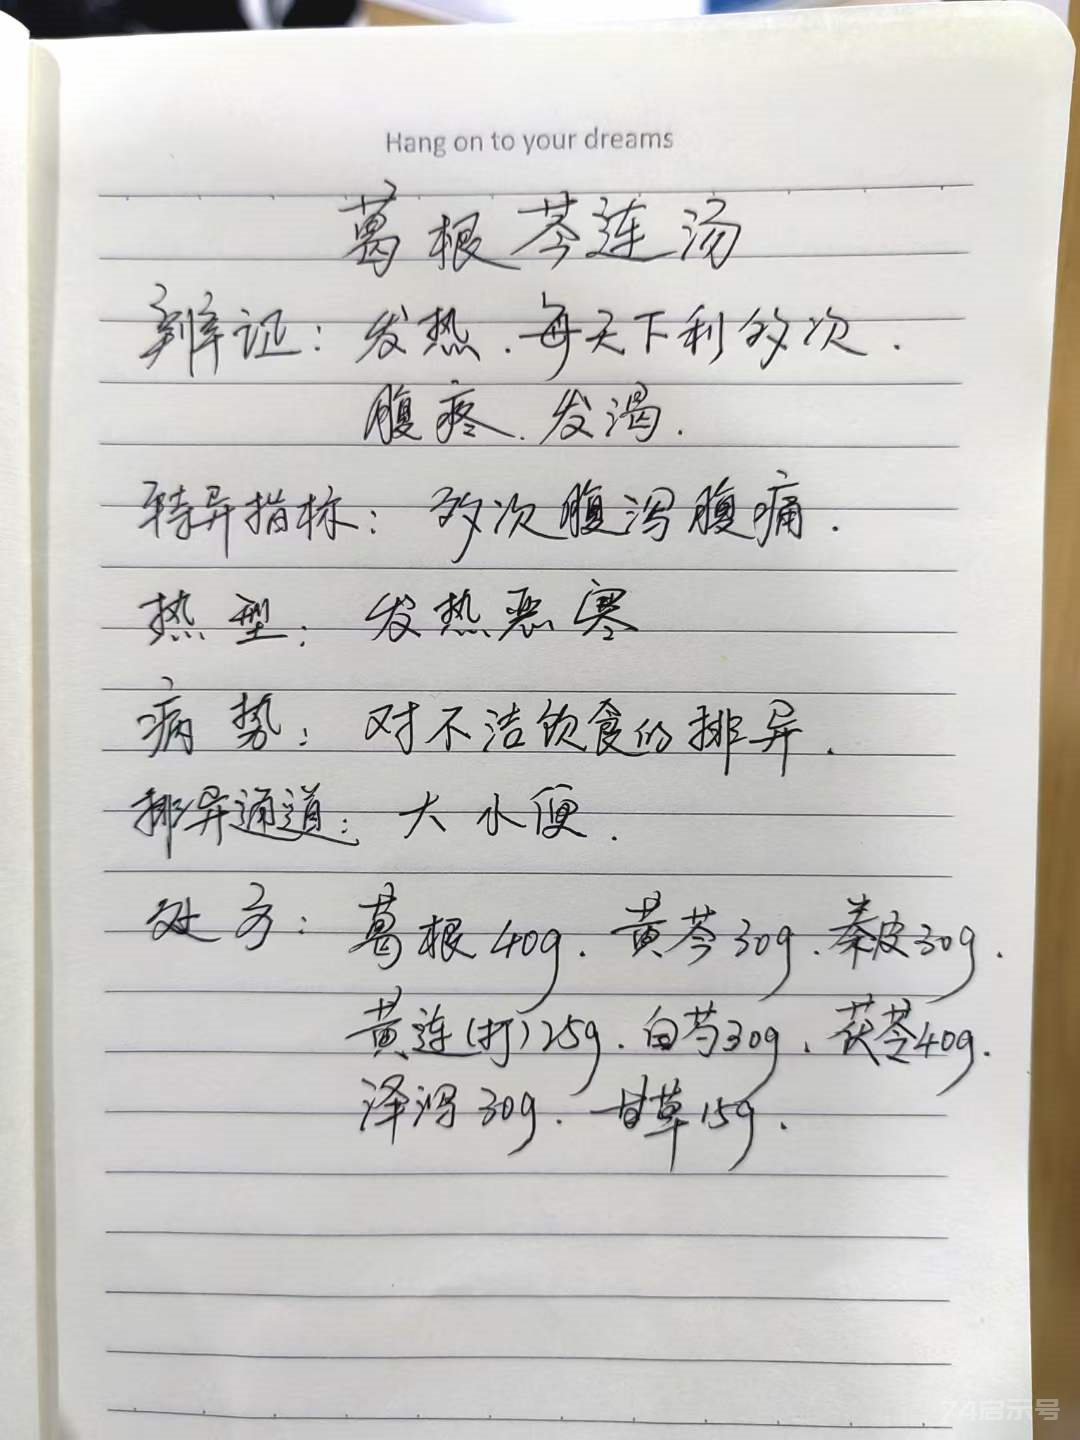 Hang on to your dreams
葛根芩连汤
辨证：发热．每天下利多次．
腹疼．发渴．
特异指标：多次腹泻腹痛．
热型：发热恶寒
病势：对不洁饮食的排异．
排异通道：大水便．
处方：葛根40g．黄芩30g．秦皮30g．
黄连(打)25g．白芍30g．茯苓40g．
泽泻30g．甘草15g．
74启示号